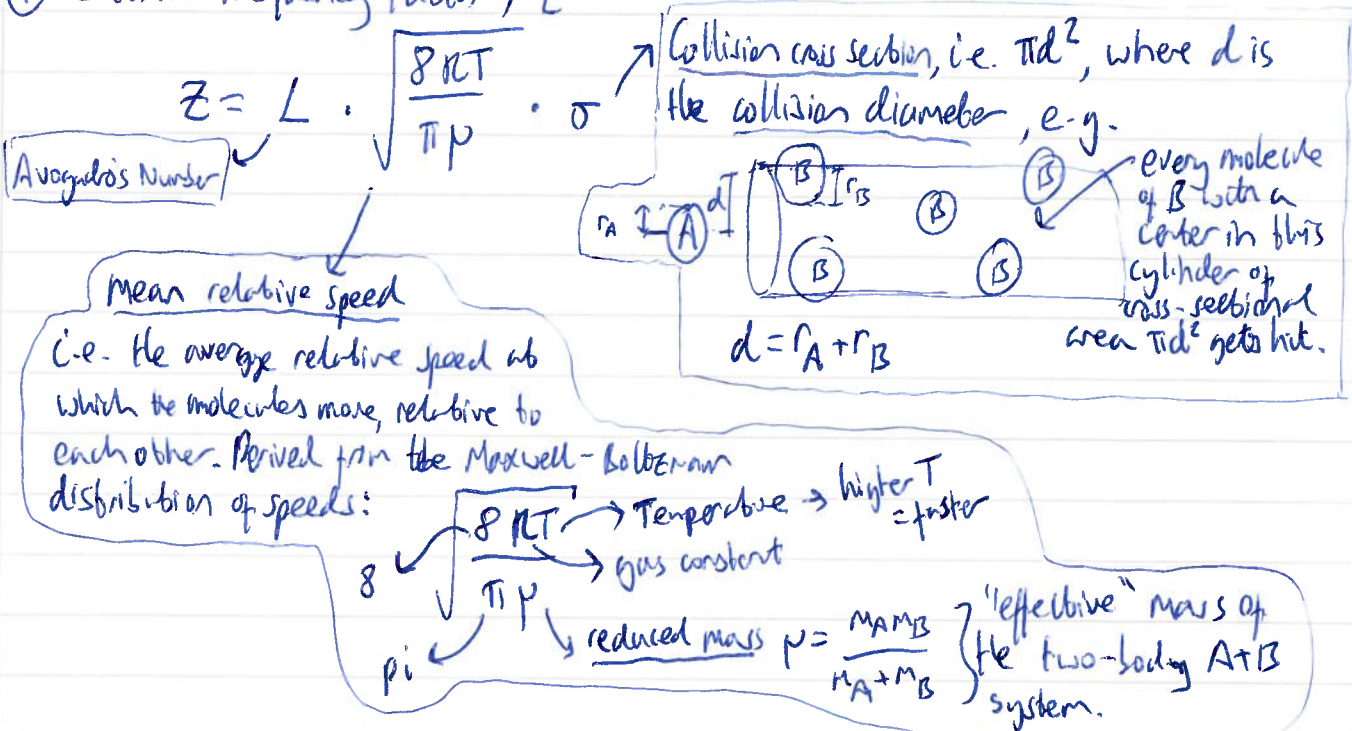 frequency factor, Z
Z = L · √(8RT / πμ) · σ
Avogadro's Number
Collision cross section, i.e. πd², where d is
the collision diameter, e.g.
rA A d B rB B B B B
every molecule
of B with a
center in this
cylinder of
cross-sectional
area πd² gets hit.
d = rA + rB
mean relative speed
i.e. the average relative speed at
which the molecules move, relative to
each other. Derived from the Maxwell-Boltzmann
distribution of speeds:
√(8RT / πμ)
Temperature → higher T
= faster
gas constant
8
pi
reduced mass μ = mAmB / mA + mB
"effective" mass of
the two-body A+B
system.